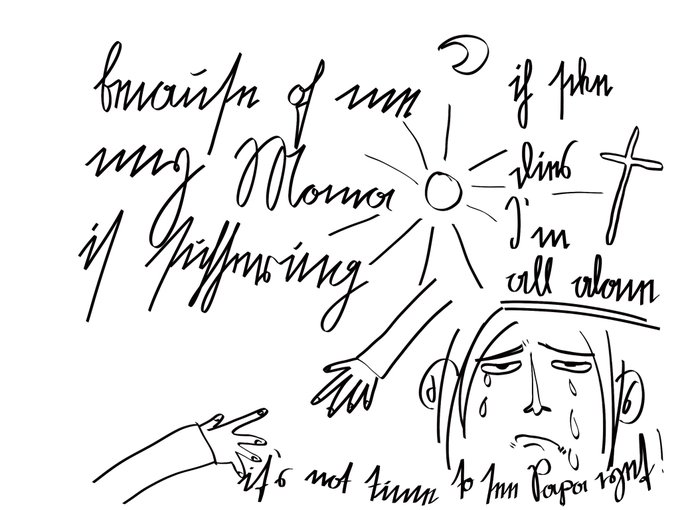 because of me
my Mama
is suffering
if she
dies
I'm
all alone
it's not time to see Papa yet!